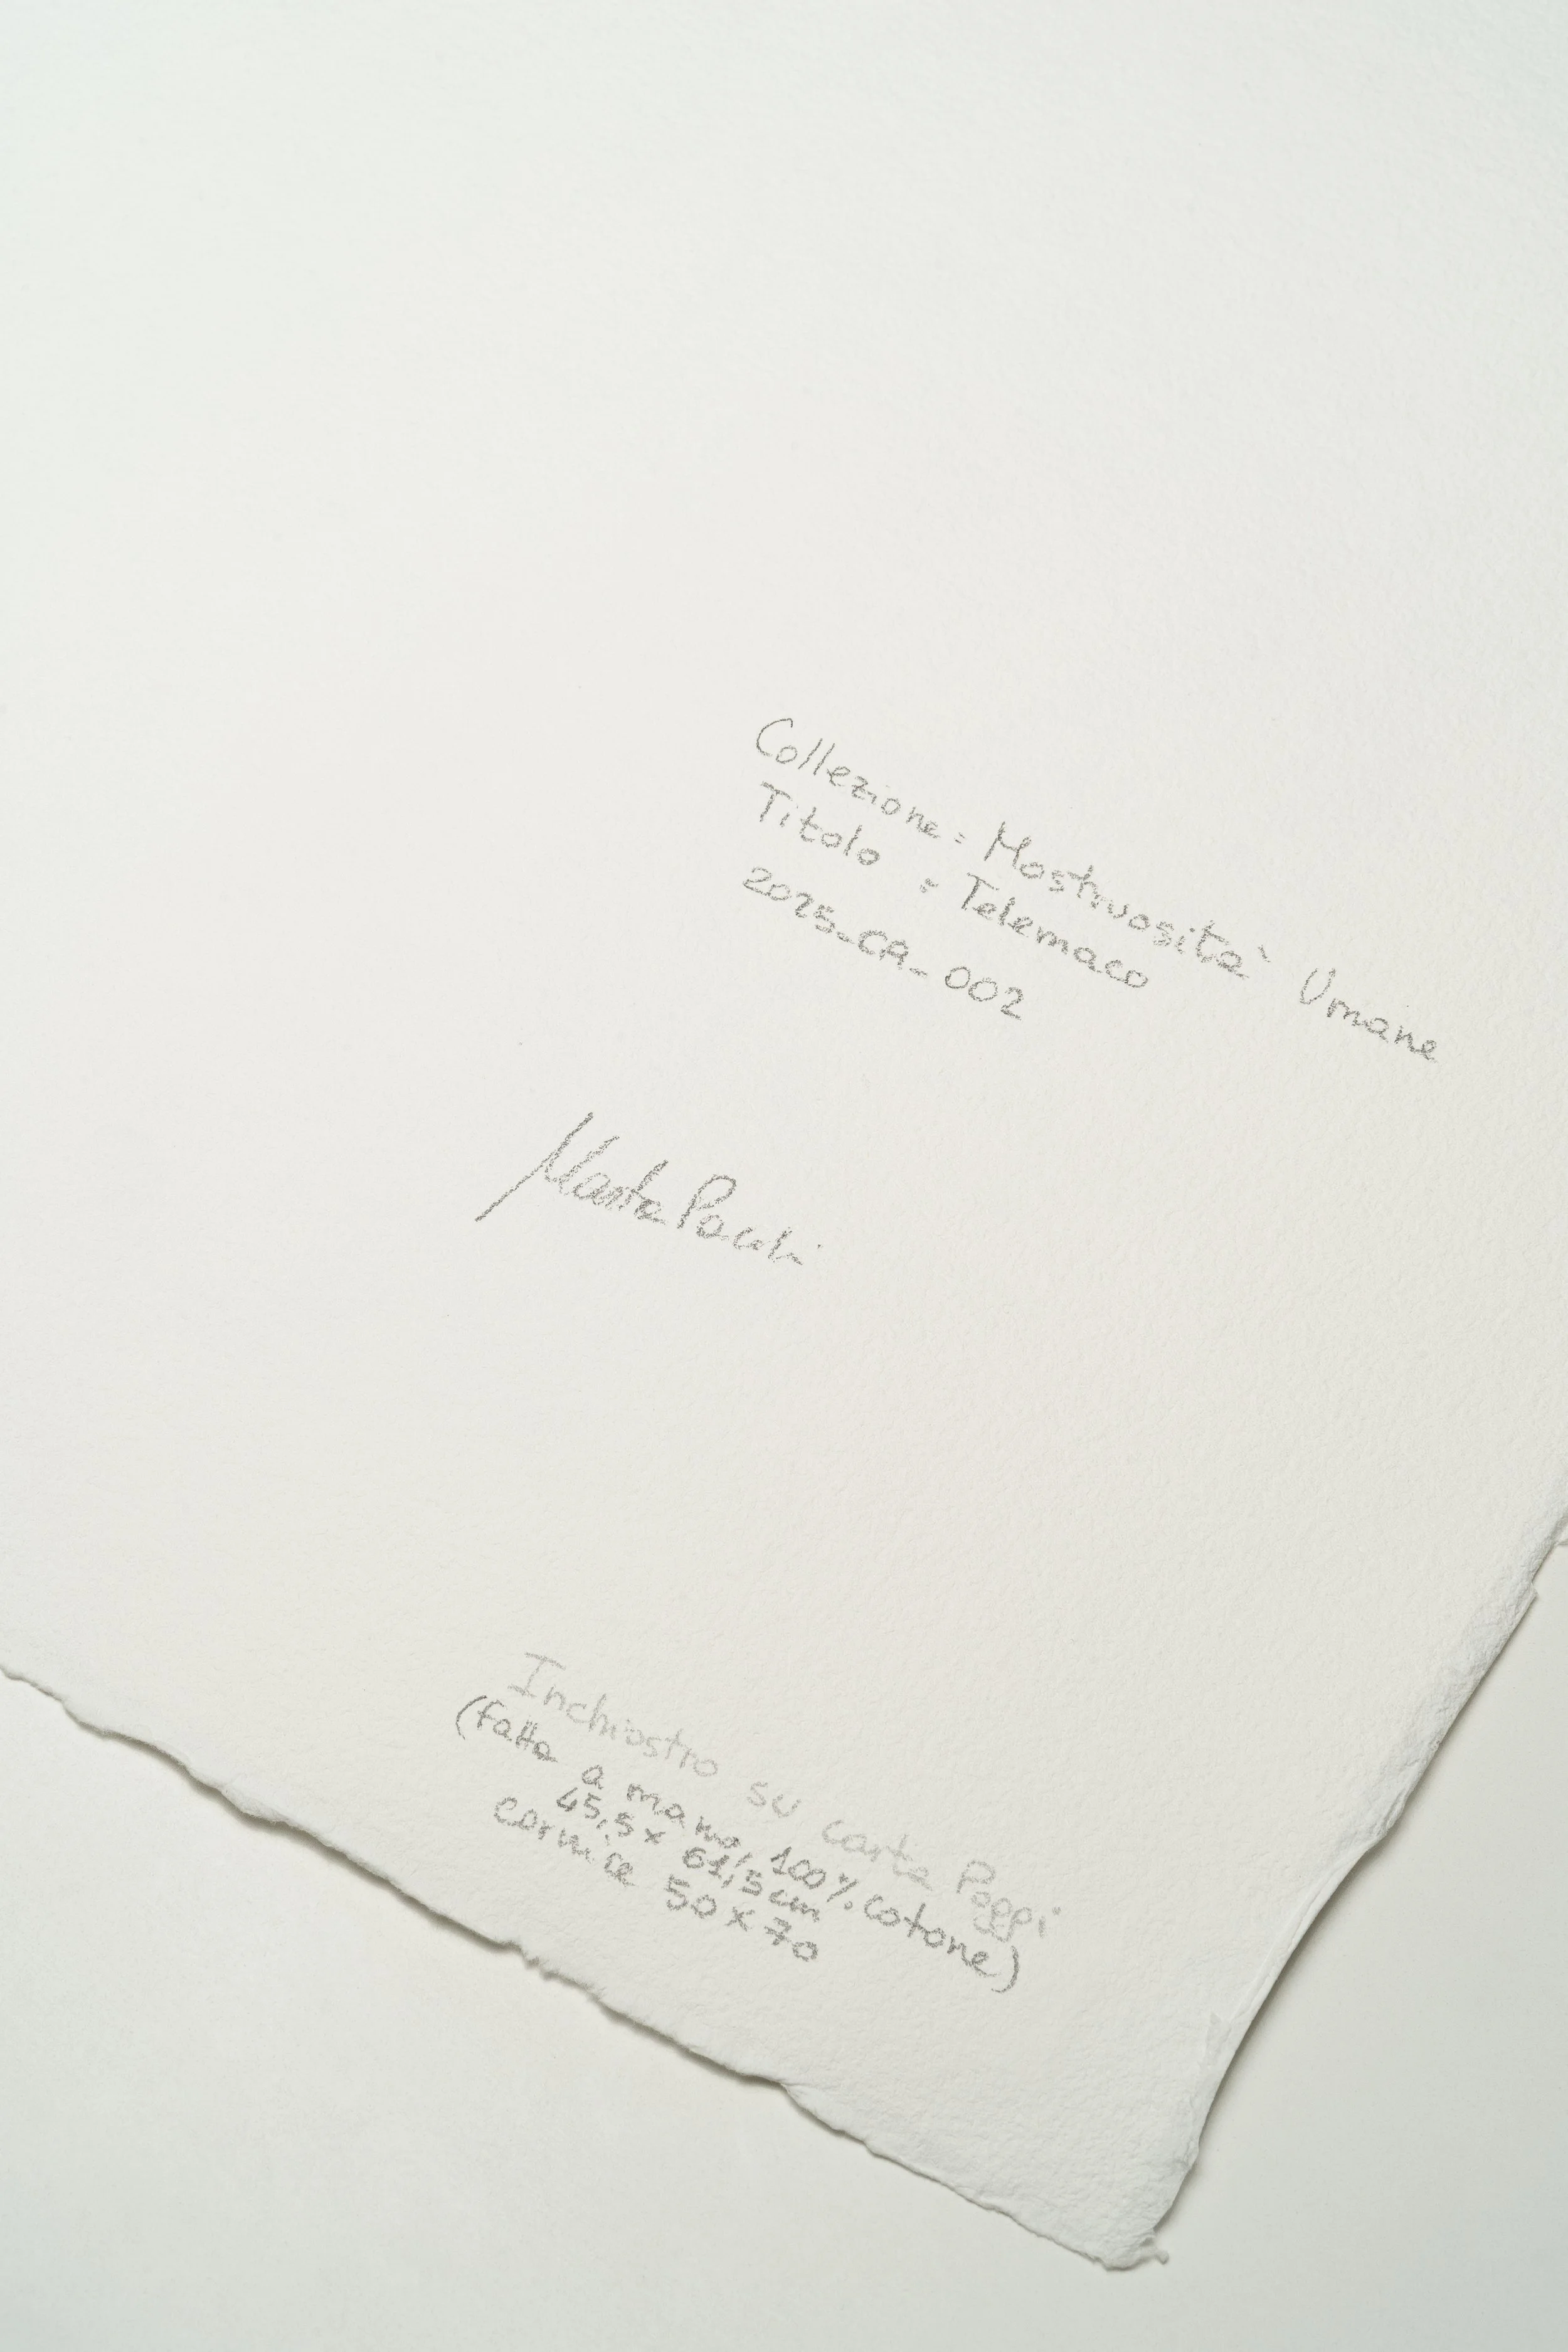 Collezione: Mostruosità Umane
Titolo : Telemaco
2025_CA_002
Marta
Inchiostro su carta Poggi
(fatta a mano, 100% cotone)
45,5 x 61,5 cm
cornice 50 x 70